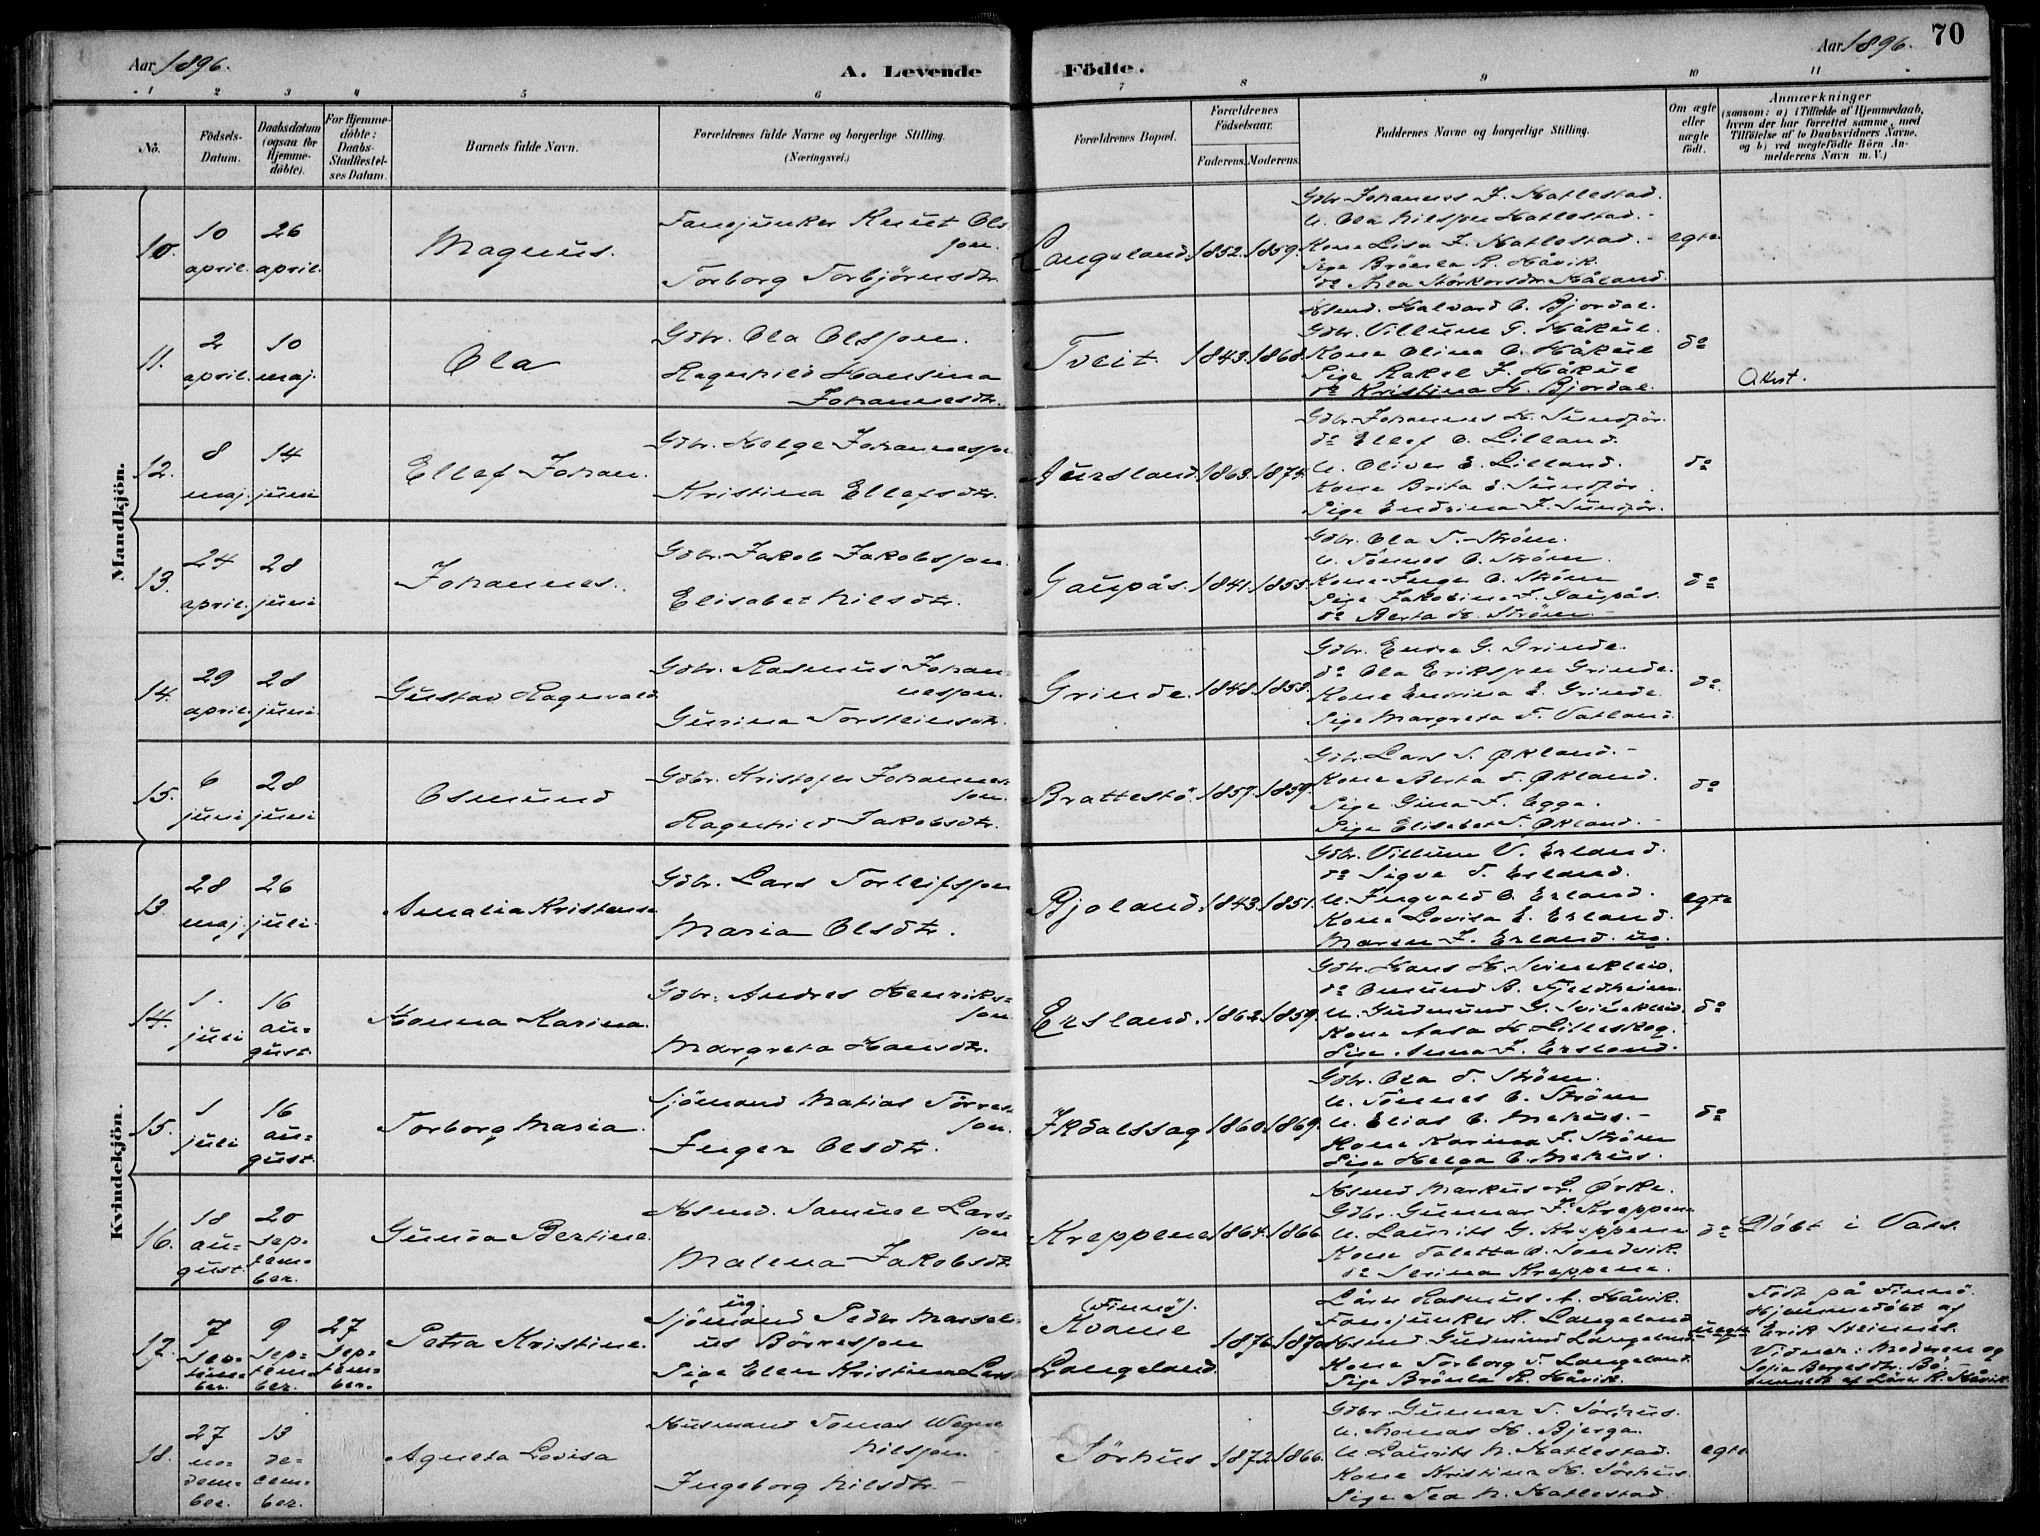 70
Aar 1896.
Aar 1896.
A. Levende Födte.
1 2 3 4 5 6 7 8 9 10 11
No.
Födsels-Datum.
Daabsdatum (ogsaa for Hjemme-döbte).
For Hjemme-döbte: Daabs-Stadfæstel-ses Datum.
Barnets fulde Navn.
Forældrenes fulde Navne og borgerlige Stilling. (Næringsvei.)
Forældrenes Bopæl.
Forældrenes Födselsaar.
Faderens. Moderens.
Faddernes Navne og borgerlige Stilling.
Om ægte eller uægte födt.
Anmærkninger
(saasom: a) i Tilfælde af Hjemmedaab, hvem der har forrettet samme, med Tilföielse af to Daabsvidners Navne, og b) ved uægtefödte Börn An-melderens Navn m. V.)
Mandkjön.
10. 10 april. 26 april. Magnus.
Fanejunker Knut Ols-son.
Torborg Torbjörnsdtr.
Langeland. 1852. 1859.
Gdbr. Johannes J. Hatlestad.
U. Ola Nilsson Hatlestad.
Kone Lisa J. Hatlestad.
Pige Brönla R. Håvik.
do Thea Störkorsdtr. Håland.
egte
11. 2 april. 10 maj. Ola
Gdbr. Ola Olsson.
Ragnhild Hansina Johannesdtr.
Tveit. 1843. 1868.
Hsmd. Halvard O. Bjordal.
Gdbr. Villum T. Håkul.
Kone Olina O. Håkul
Pige Rakel J. Håkul
do Kristina H. Bjordal.
do
Okst.
12. 8 maj. 14 juni Ellef Johan.
Gdbr. Helge Johannesson
Kristina Ellefsdtr.
Aursland. 1863. 1874.
Gdbr. Johannes H. Sundför.
do Ellef O. Lilland.
U. Oliver E. Lilland.
Kone Brita E. Sundför.
Pige Endrina J. Sundför.
do
13. 24 april. 28 juni Johannes.
Gdbr. Jakob Jakobsson.
Elisabet Nilsdtr.
Gaupås. 1841. 1855.
Gdbr. Ola T. Ström.
U. Tönnes O. Ström.
Kone Inger O. Ström
Pige Jakobina J. Gaupås.
do Berta H. Ström.
do
14. 29 april. 28 juni. Gustav Ragnvald
Gdbr. Rasmus Johan-nesson.
Gurina Torsteinsdtr.
Grinde. 1848. 1853.
Gdbr. Endre G. Grinde.
do Ola Eriksson Grinde.
Kone Endrina E. Grinde.
Pige Margreta T. Vatland.
do.
15. 6 juni 28 juni Osmund
Gdbr. Kristofer Johannes-son.
Ragnhild Jakobsdtr.
Brattestö. 1857. 1859.
Gdbr. Lars S. Økland.
Kone Berta T. Økland.
Pige Gina J. Egge.
Pige Elisabet T. Økland.
do
Kvindekjön.
13. 28 maj. 26 juli. Amalia Kristense
Gdbr. Lars Torleifsson
Maria Olsdtr.
Bjoland. 1843. 1851.
Gdbr. Villum V. Erland.
do Sigve T. Erland.
U. Ingvald O. Erland.
Kone Lovisa E. Erland.
Maren J. Erland. ug.
egte
14. 1. juli 16 au-gust. Hanna Karina.
Gdbr. Andres Henriks-son.
Margreta Hansdtr.
Ersland. 1862. 1859.
Gdbr. Hans H. Svinekleiv.
do Omund B. Fjeldheim.
U. Gudmund G. Svinekleiv.
Kone Aasa H. Lilleskog.
Pige Anna J. Ersland.
do
15. 1 juli 16 au-gust. Torborg Maria.
Sjömand Matias Törres-son.
Inger Olsdtr.
Ikdalssag 1860. 1869.
Gdbr. Ola T. Ström.
U. Tönnes O. Ström
U. Elias O. Mehus.
Kone Karina J. Ström
Pige Helga O. Mehus.
do
16. 18 au-gust. 20 sep-tem-ber. Gunda Bertine.
Hsmd. Samuel Lars-son
Malena Jakobsdtr.
Kreppene 1864. 1866.
Hsmd Markus L. Örke.
Gdbr. Gunnar J. Kreppene
U. Laurits G. Kreppene
Kone Taletta O. Sandvik.
do Serina Kreppene.
do
Döbt i Vats.
17. 7 sep-tem-ber. 9 sep-tem-ber. 27 sep-tem-ber. Petra Kristine.
ug.
Sjömand Peder Marseli-us Börresson
Pige Elen Kristina Lars
(Finnö). Kvame
Langeland. 1876. 1870.
Lärer Rasmus A. Håvik.
Fanejunker K. Langeland
Hsmd. Gudmund Langeland
Kone Torborg T. Langeland.
Pige Brönla R. Håvik.
uegte
Födt på Finnö.
Hjemmedöbt af
Erik Steinnes.
Vidner: Moderen og
Sofia Bergesdtr. Bö.
Anmeldt af Lärer R. Håvik.
18. 27 no-vem-ber. 13 de-cem-ber. Agneta Lovisa
Husmand Tomas Wogne Nilsson.
Ingeborg Nilsdtr.
Sörhus 1872. 1866.
Gdbr. Gunnar T. Sörhus.
U. Tomas H. Bjerga.
U. Laurits N. Hatlestad.
Kone Kristina H. Sörhus.
Pige Tea N. Hatlestad.
egte